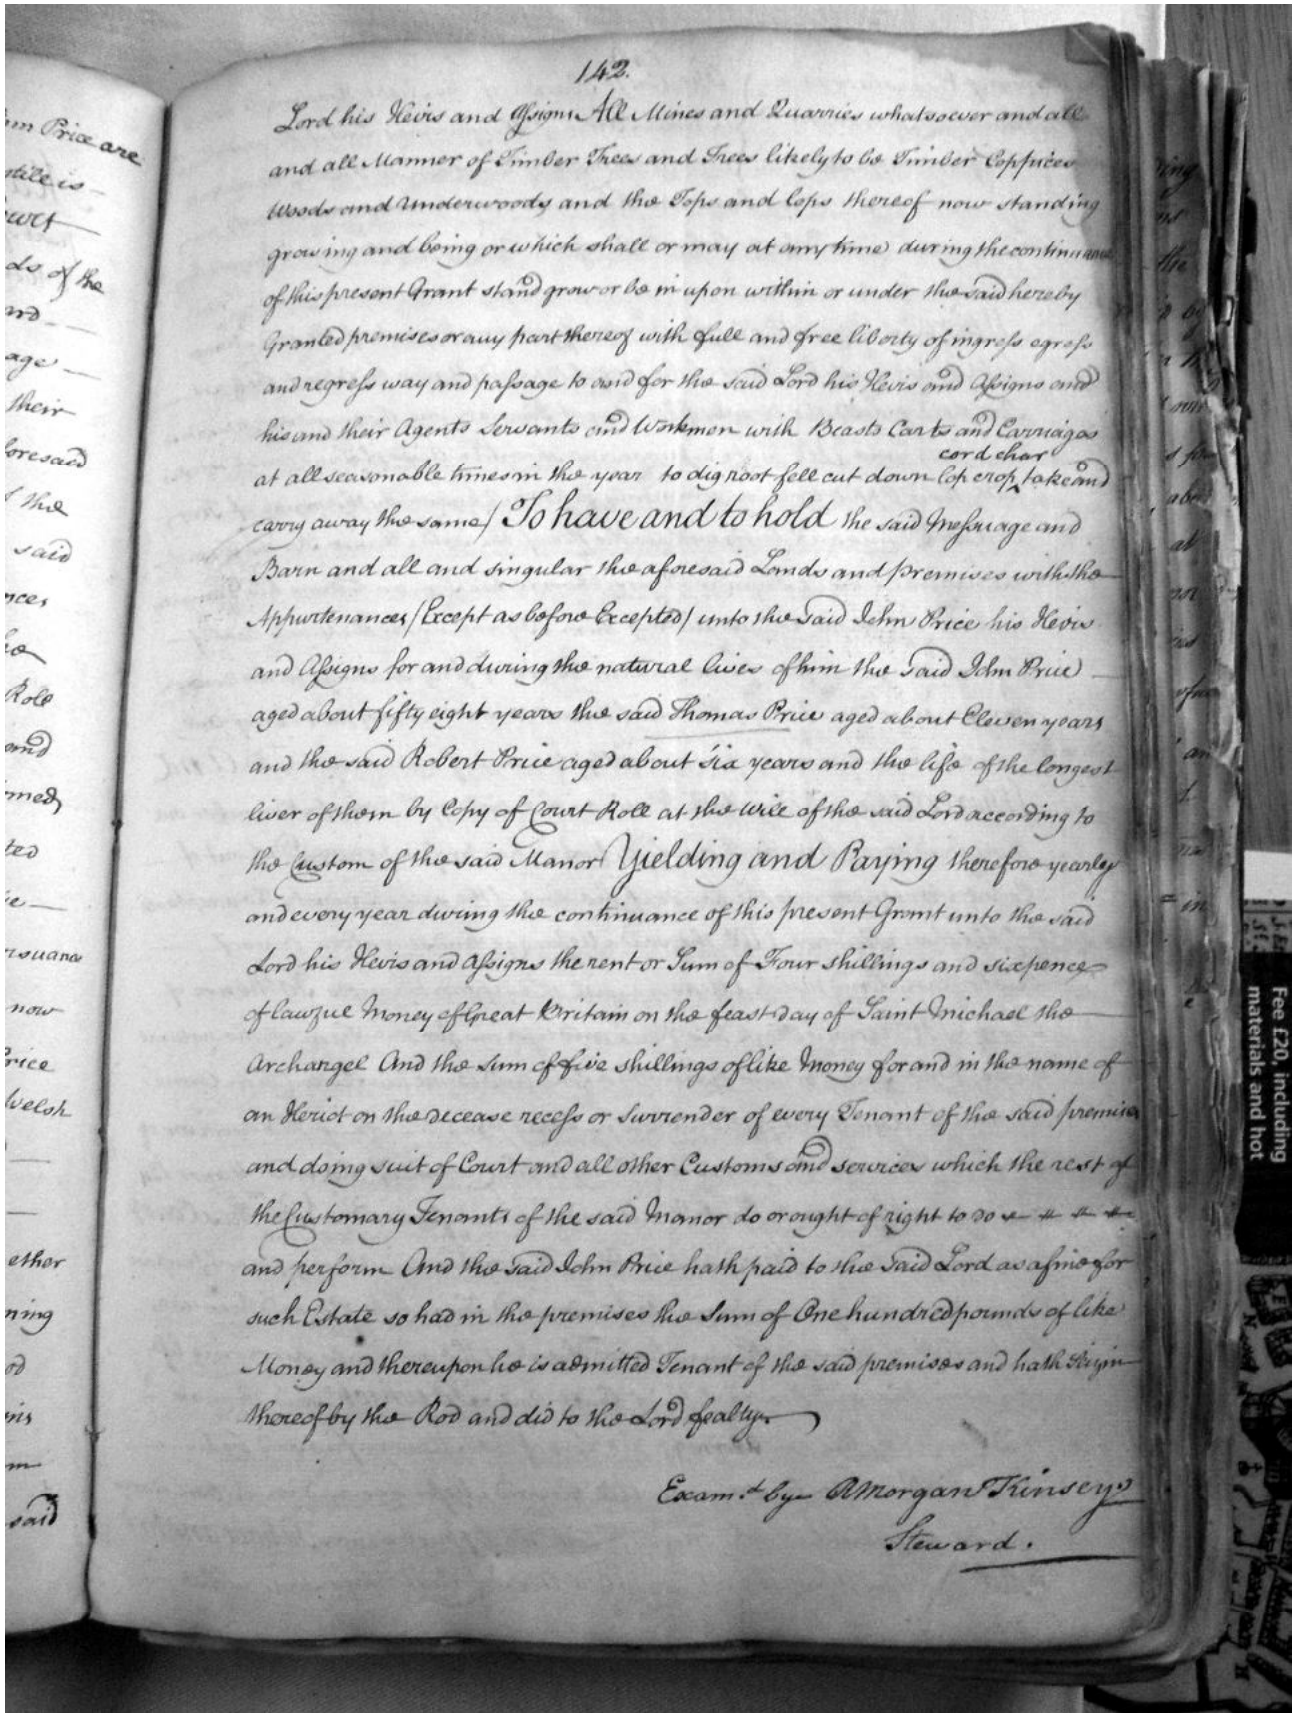 nn Price are
still is
Court
ds of the
ard
age
their
foresaid
of the
said
nces
Roll
and
med
ted
rsuance
now
Price
Welsh
ether
ning
od
said
142.
Lord his Heirs and Assigns All Mines and Quarries whatsoever and all
and all Manner of Timber Trees and Trees likely to be Timber Coppices
Woods and Underwoods and the Tops and Lops thereof now standing
growing and being or which shall or may at any time during the continuance
of this present Grant stand grow or be in upon within or under the said hereby
Granted premises or any part thereof with full and free liberty of ingress egress
and regress way and passage to and for the said Lord his Heirs and Assigns and
his and their Agents Servants and Workmen with Beasts Carts and Carriages
cord char
at all seasonable times in the year to dig root fell cut down lop crop ‸ take and
carry away the same / To have and to hold the said Messuage and
Barn and all and singular the aforesaid Lands and premises with the
Appurtenances / Except as before Excepted / unto the said John Price his Heirs
and Assigns for and during the natural lives of him the said John Price
aged about fifty eight years the said Thomas Price aged about Eleven years
and the said Robert Price aged about six years and the life of the longest
liver of them by Copy of Court Roll at the Will of the said Lord according to
the Custom of the said Manor Yielding and Paying therefore yearly
and every year during the continuance of this present Grant unto the said
Lord his Heirs and Assigns the rent or Sum of Four shillings and sixpence
of lawful Money of Great Britain on the feast day of Saint Michael the
Archangel And the sum of five shillings of like Money for and in the name of
an Heriot on the decease recess or surrender of every Tenant of the said premises
and doing suit of Court and all other Customs and services which the rest of
the Customary Tenants of the said Manor do or ought of right to do
and perform And the said John Price hath paid to the said Lord as a fine for
such Estate so had in the premises the Sum of One hundred pounds of like
Money and thereupon he is admitted Tenant of the said premises and hath Seizin
thereof by the Rod and did to the Lord fealty
Exam.d by A Morgan Kinsey
Steward.
Fee £20, including
materials and hot